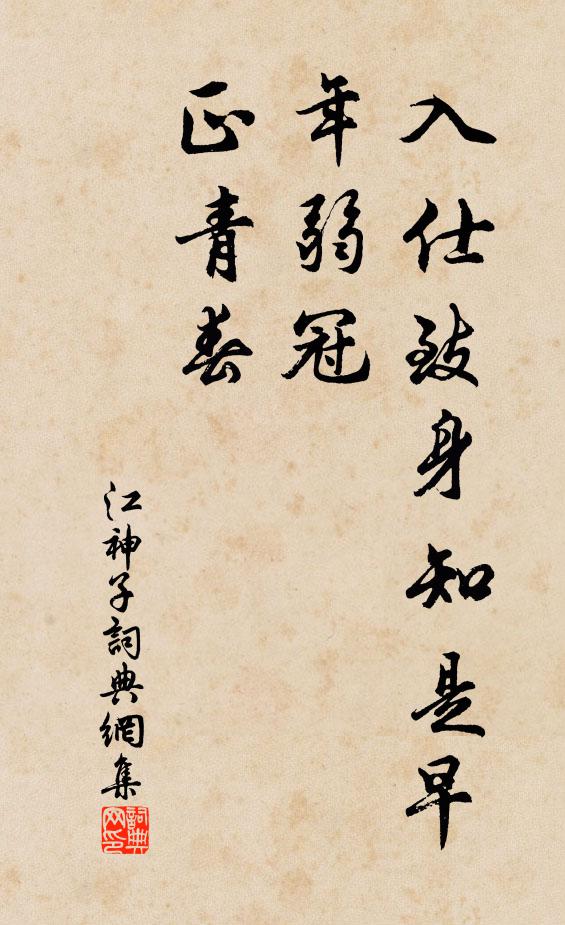 入仕致身知是早
年弱冠
正青春
江神子詞典網集
詞典
网印